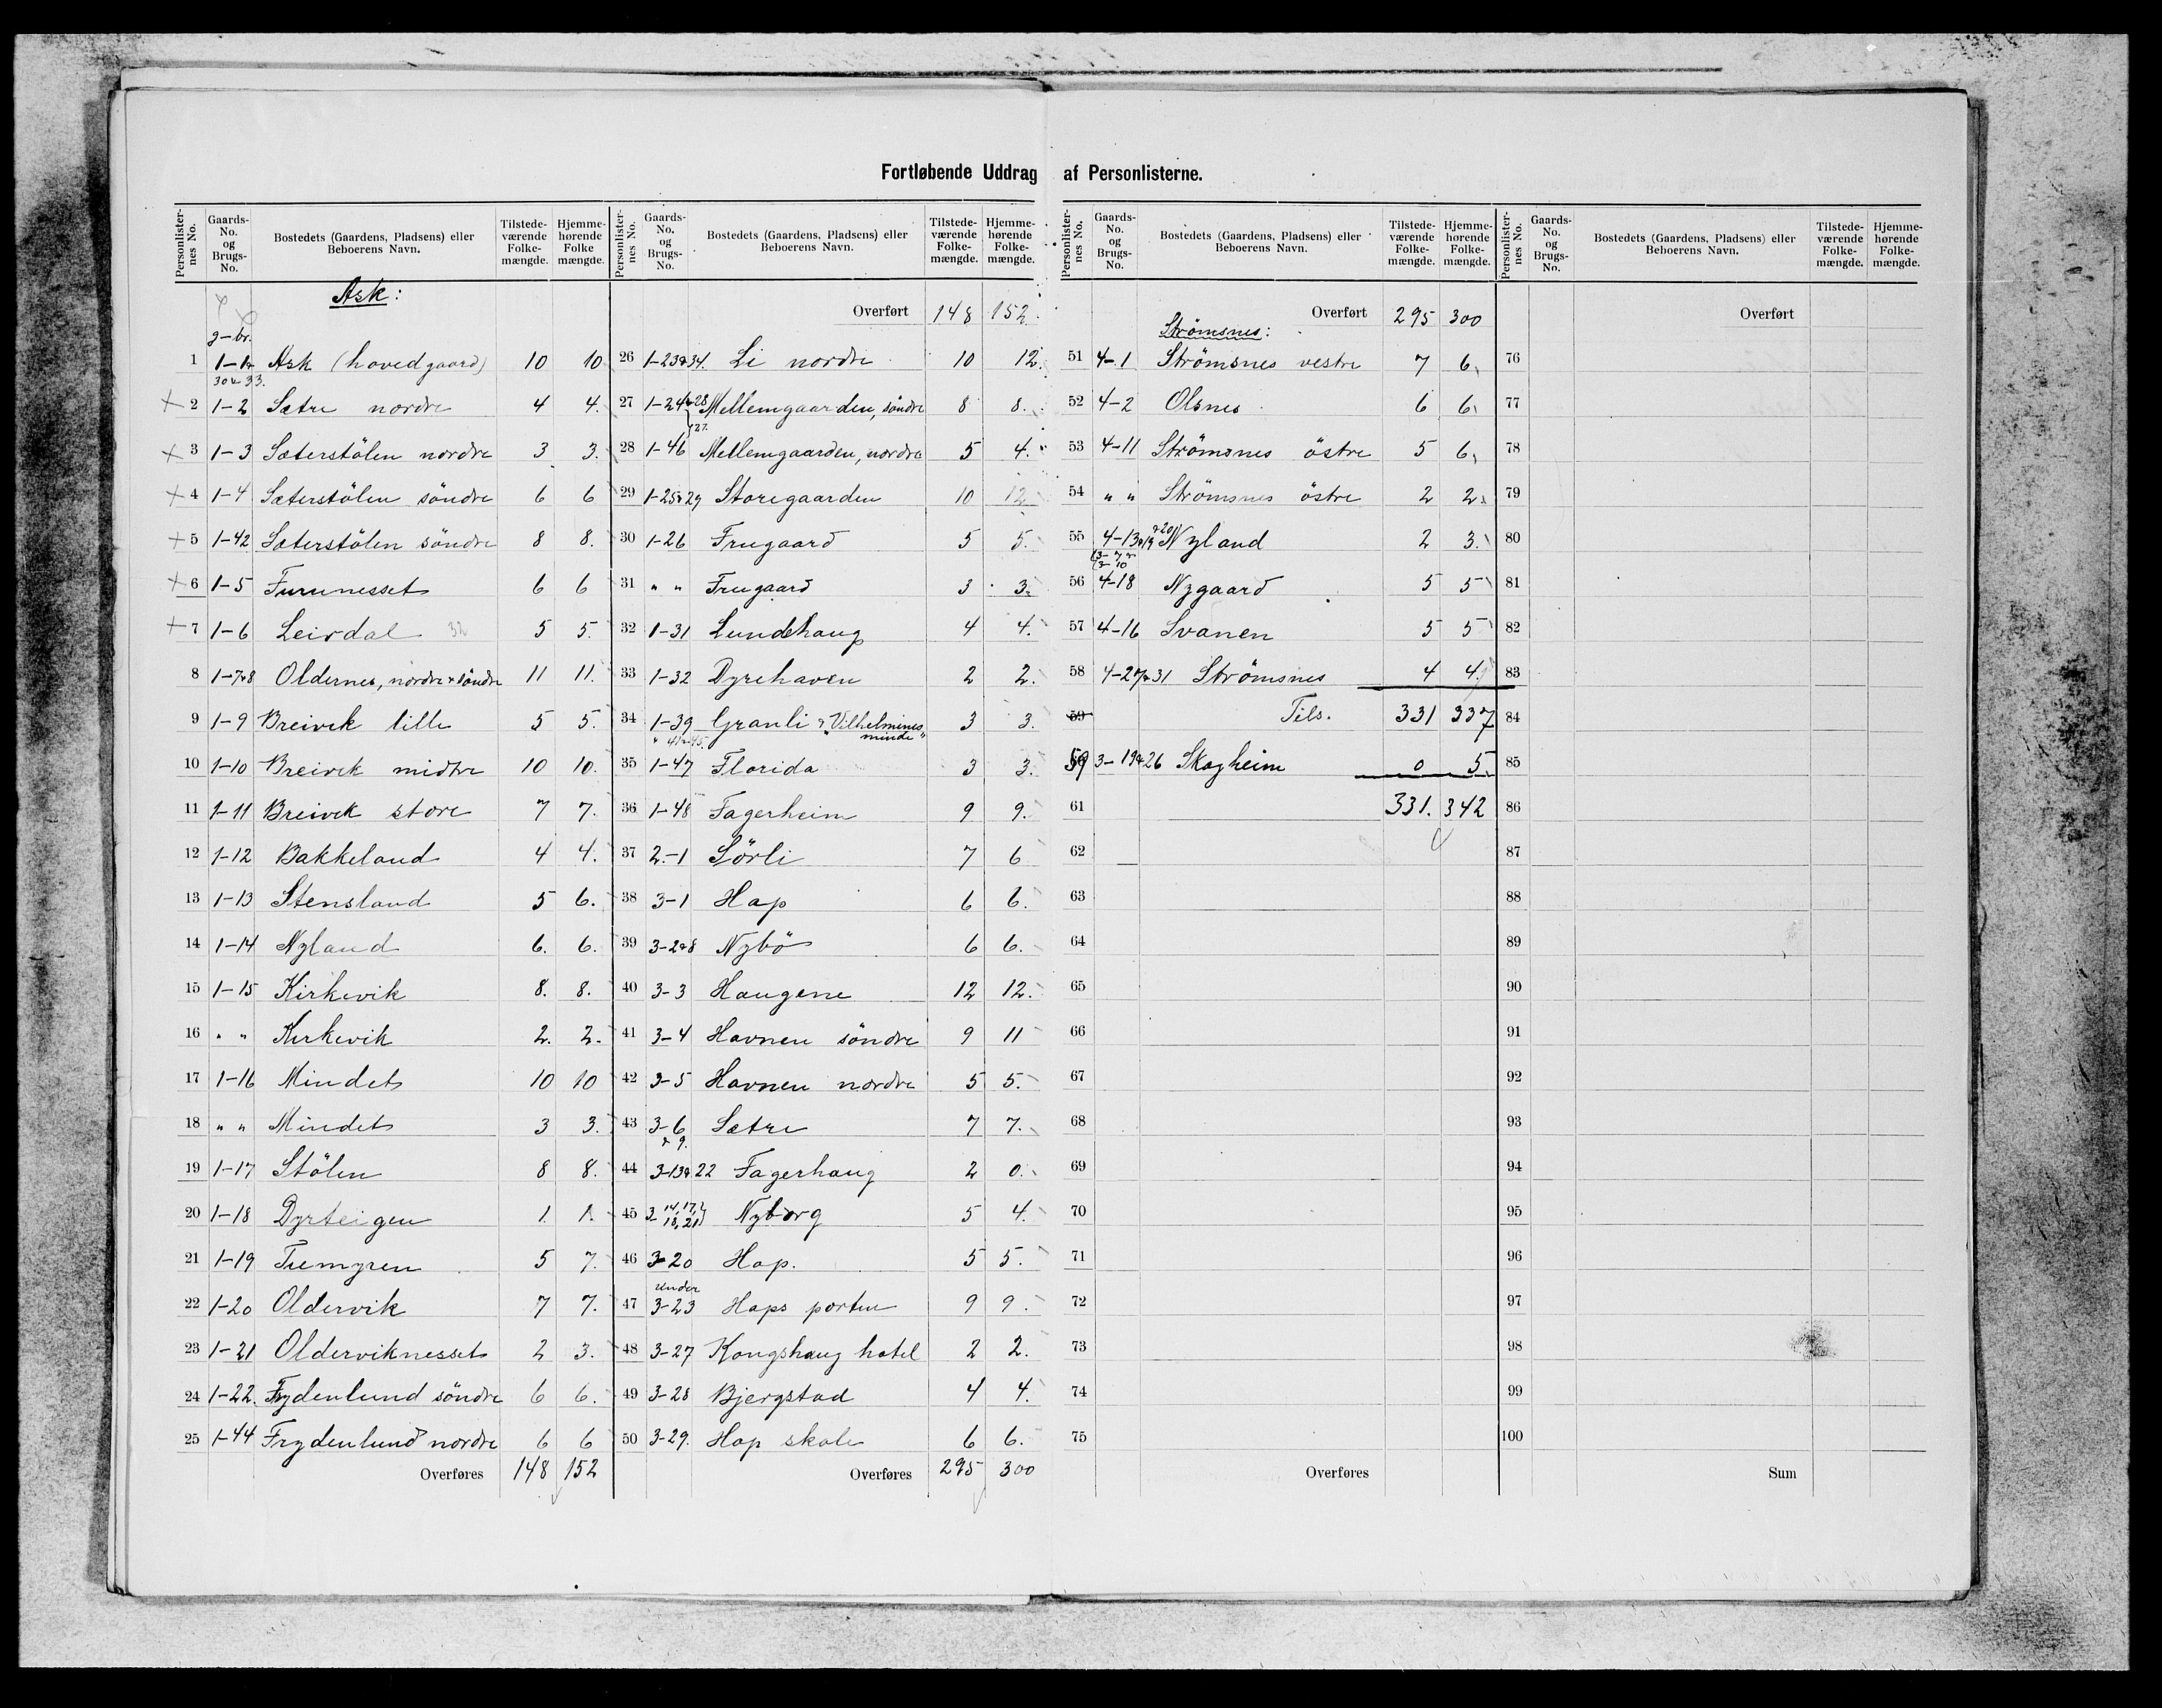 Fortløbende Uddrag af Personlisterne.
Personlister-nes No. Gaards-No. og Brugs-No. Bostedets (Gaardens, Pladsens) eller Beboerens Navn. Tilstede-værende Folke-mængde. Hjemme-hørende Folke mængde.
Ask:
g-br.
1 1-1 & 30 & 33. Ask (hovedgaard) 10 10
2 1-2 Sætre nordre 4 4.
3 1-3 Sæterstölen nordre 3 3.
4 1-4 Sæterstölen söndre 6 6
5 1-42 Sæterstölen söndre 8 8.
6 1-5 Furunesset 6 6
7 1-6 Leirdal 32 5 5.
8 1-7&8 Oldernes, nordre & söndre 11 11.
9 1-9 Breivik lille 5 5.
10 1-10 Breivik midtre 10 10.
11 1-11 Breivik store 7 7.
12 1-12 Bakkeland 4 4.
13 1-13 Stensland 5 6.
14 1-14 Nyland 6. 6.
15 1-15 Kirkevik 8. 8.
16 " " Kirkevik 2. 2.
17 1-16 Mindet 10 10
18 " " Mindet 3 3.
19 1-17 Stölen 8 8.
20 1-18 Dyrteigen 1. 1.
21 1-19 Tuemyren 5 7.
22 1-20 Oldervik 7 7.
23 1-21 Olderviknesset 2 3.
24 1-22. Frydenlund söndre 6 6.
25 1-44 Frydenlund nordre 6 6
Overføres 148 152
Personlister-nes No. Gaards-No. og Brugs-No. Bostedets (Gaardens, Pladsens) eller Beboerens Navn. Tilstede-værende Folke-mængde. Hjemme-hørende Folke-mængde.
Overført 148 152.
26 1-23&34. Li nordre 10 12.
27 1-24&28 27. Mellemgaarden, söndre 8 8.
28 1-46 Mellemgaarden, nordre 5 4.
29 1-25&29 Storegaarden 10 12
30 1-26 Frugaard 5 5.
31 " " Frugaard 3 3.
32 1-31 Lundehaug 4 4.
33 1-32 Dyrehaven 2 2.
34 1-39 " 41&45. Granli & "Vilhelmines minde" 3 3.
35 1-47 Florida 3 3.
36 1-48 Fagerheim 9 9.
37 2-1 Sörli 7 6
38 3-1 Hap 6 6.
39 3-2&8 Nybö 6 6.
40 3-3 Haugene 12 12.
41 3-4 Havnen söndre 9 11
42 3-5 Havnen nordre 5 5.
43 3-6 & 9. Sætre 7 7.
44 3-13&22 Fagerhaug 2 0.
45 3- 14,17, 18,21 Nyborg 5 4.
46 3-20 Hop. 5 5.
47 under 3-23 Haps porten 9 9.
48 3-27 Kongshaug hotel 2 2.
49 3-28 Bjergstad 4 4.
50 3-29. Hop skole 6 6.
Overføres 295 300
Personlister-nes No. Gaards-No. og Brugs-No. Bostedets (Gaardens, Pladsens) eller Beboerens Navn. Tilstede-værende Folke-mængde. Hjemme-hørende Folke-mængde.
Overført 295 300
Strömsnes:
51 4-1 Strömsnes vestre 7 6
52 4-2 Olsnes 6 6
53 4-11 Strömsnes östre 5 6
54 " " Strömsnes östre 2 2
55 4-13&19 &20 Nyland 2 3.
56 4-18 Nygaard 5 5
57 4-16 Svanen 5 5
58 4-27&31 Strömsnes 4 4
59 Tils. 331 337
59 3-19&26 Skogheim 0 5
61 331. 342
62
63
64
65
66
67
68
69
70
71
72
73
74
75
Overføres
Personlister-nes No. Gaards-No. og Brugs-No. Bostedets (Gaardens, Pladsens) eller Beboerens Navn. Tilstede-værende Folke-mængde. Hjemme-hørende Folke-mængde.
Overført
76
77
78
79
80
81
82
83
84
85
86
87
88
89
90
91
92
93
94
95
96
97
98
99
100
Sum